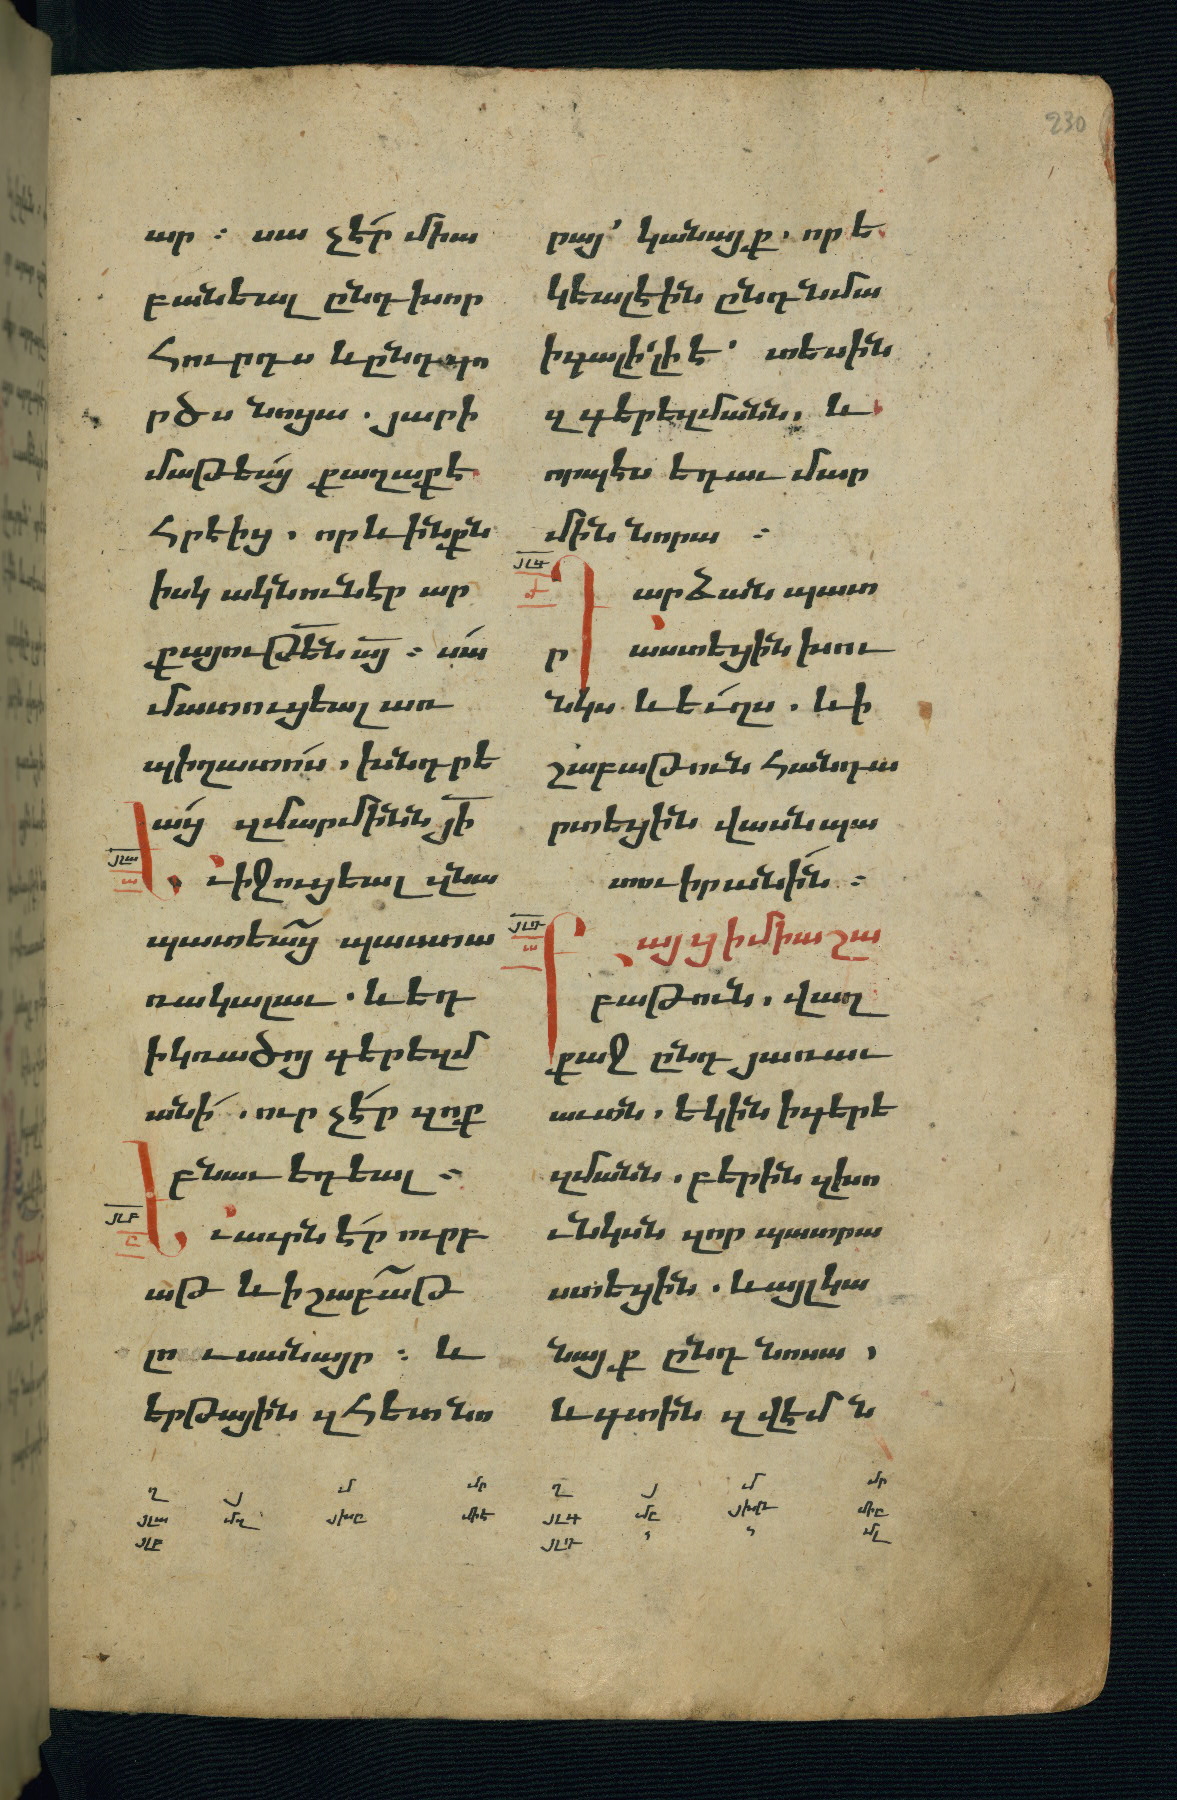 230
ար ։ սա չէր միա
բանեալ ընդ խոր
հուրդս և ընդ գո
րծս նոցա . յարի
մաթեայ քաղաքէ
հրէից , որ և ինքն
իսկ ակնունէր ար
քայութեն այ ։ սա
մատուցեալ առ
պիղատոս , խնդրե
աց զմարմինն յի
յլա
Եւ իջուցեալ զնա
պատեաց պաստա
ռակալաւ . և եդ
ի կռածոյ գերեզմ
անի . ուր չէր զոք
բնաւ եդեալ ։
յլբ
Եւ աւրն էր ուրբ
աթ և ի շաբաթ
լուսանայր ։ և
երթային զհետ նո
րայ՝ կանայք . որ ե
կեալ էին ընդ նմա
ի գալիլիէ ՝ տեսին
զգերեզմանն , և
որպէս եդաւ մար
մին նորա ։
յլգ
Դարձան պատ
րաստեցին խու
նկս և եւղս . և ի
շաբաթուն հանդա
րտեցին վասն պա
տուիրանին ։
յլդ
Բայց ի միաշա
բաթուն , վաղ
քաջ ընդ յառաւ
աւտն , եկին ի գերե
զմանն , բերին զխո
ւնկսն զոր պատրա
ստեցին . և այլ կա
նայք ընդ նոսա ,
և գտին զվէմն
ղ յ մ մր
յլա յխը միե
յլբ
ղ յ մ մր
յլգ մը միը
յլդ մլ